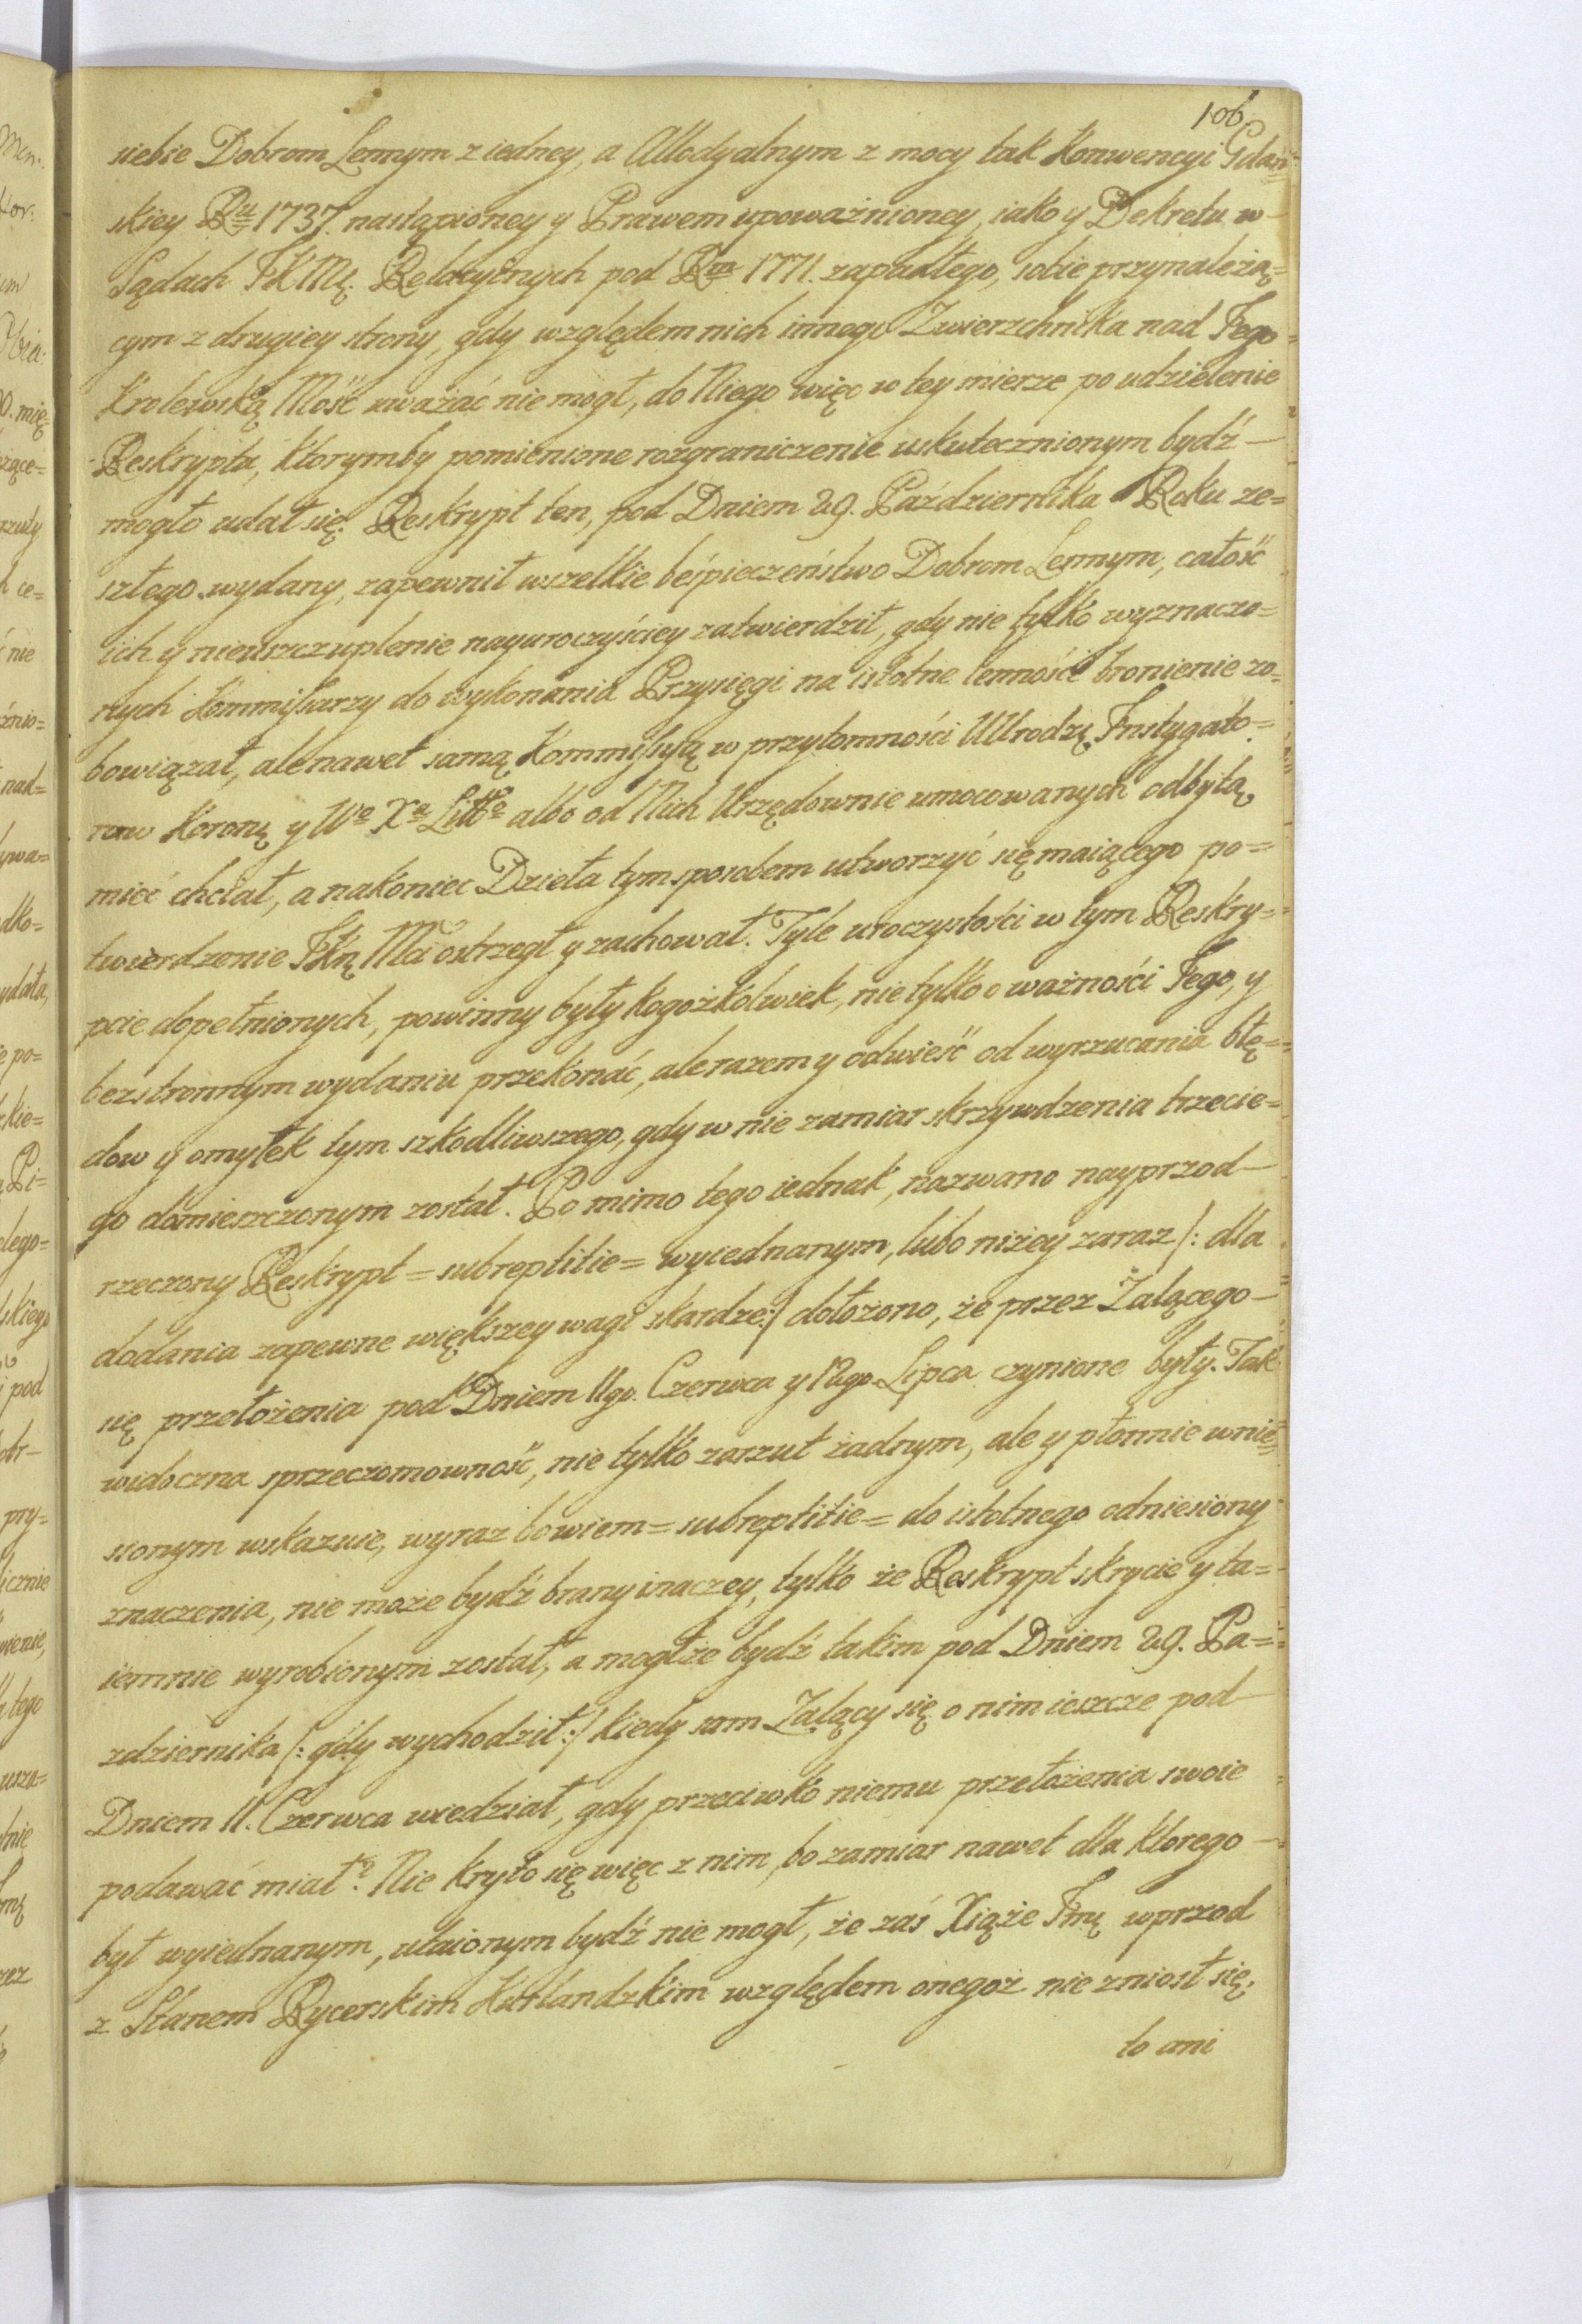 106
siebie Dobrom Lennym z iedney, a Allodyalnym z mocy tak Konwencyi Gdań=
skiey Ru 1737. nastąpioney y Prawem upoważnioney, iako y Dekretu w
Sądach JKMę. Relacyinych pod Rm 1771. zapadłego, sobie przynależą=
cym z drugiey strony, gdy względem nich innego Zwierzchnika nad Jego=
Krolewską Mość uważać nie mogł, do Niego więc w tey mierze po udzielenie
Reskryptu, ktorymby pomienione rozgraniczenie uskutecznionym bydź —
mogło udał się. Reskrypt ten, pod Dniem 29. Października Roku ze=
szłego wydany, zapewnił wszelkie beśpieczeństwo Dobrom Lennym, całość
ich y nieuszczuplenie nayuroczyściey zatwierdził, gdy nie tylko wyznaczo=
nych Kommissarzy do wykonania Przysięgi na istotne lenności bronienie zo=
bowiązał, ale nawet samą Kommissyią w przytomności UUrodzę. Instygato=
row Koronę y Wo Xa Litto albo od Nich Urzędownie umocowanych odbytą,
mieć chciał, a nakoniec Dzieła tym sposobem utworzyć się maiącego po=
twierdzenie JKnę Mci ostrzegł y zachował. Tyle uroczystości w tym Reskry=
pcie dopełnionych, powinny były kogożkolwiek, nie tylko o ważności Jego, y
bezstronnym wydaniu przekonać, ale razem y odwieść od wyrzucania błę=
dow y omyłek tym szkodliwszego, gdy w nie zamiar skrzywdzenia trzecie=
go domieszczonym został. Po mimo tego iednak, nazwano nayprzod —
rzeczony Reskrypt = subreptitie = wyiednanym, lubo niżey zaraz /: dla
dodania zapewne większey wagi skardze :/ dołożono, że przez Żalącego —
się przełożenia pod Dniem 11go. Czerwca y 12go. Lipca czynione były. Tak
widoczna sprzeczomowność, nie tylko zarzut żadnym, ale y płonnie wnie=
sionym wskazuie, wyraz bowiem = subreptitie = do istotnego odniesiony
znaczenia, nie może bydź brany inaczey, tylko że Reskrypt skrycie y ta=
iemnie wyrobionym został, a mogłże bydź takim pod Dniem 29. Pa=
zdziernika /: gdy wychodził :/ kiedy sam Żalący się o nim ieszcze pod —
Dniem 11. Czerwca wiedział, gdy przeciwko niemu przełożenia swoie
podawać miał? Nie kryto się więc z nim, bo zamiar nawet dla ktorego —
był wyiednanym, utaionym bydź nie mogł, że zaś Xiąże Jmę wprzod
z Stanem Rycerskim Kurlandzkim względem onegoż nie zniosł się,
to ani